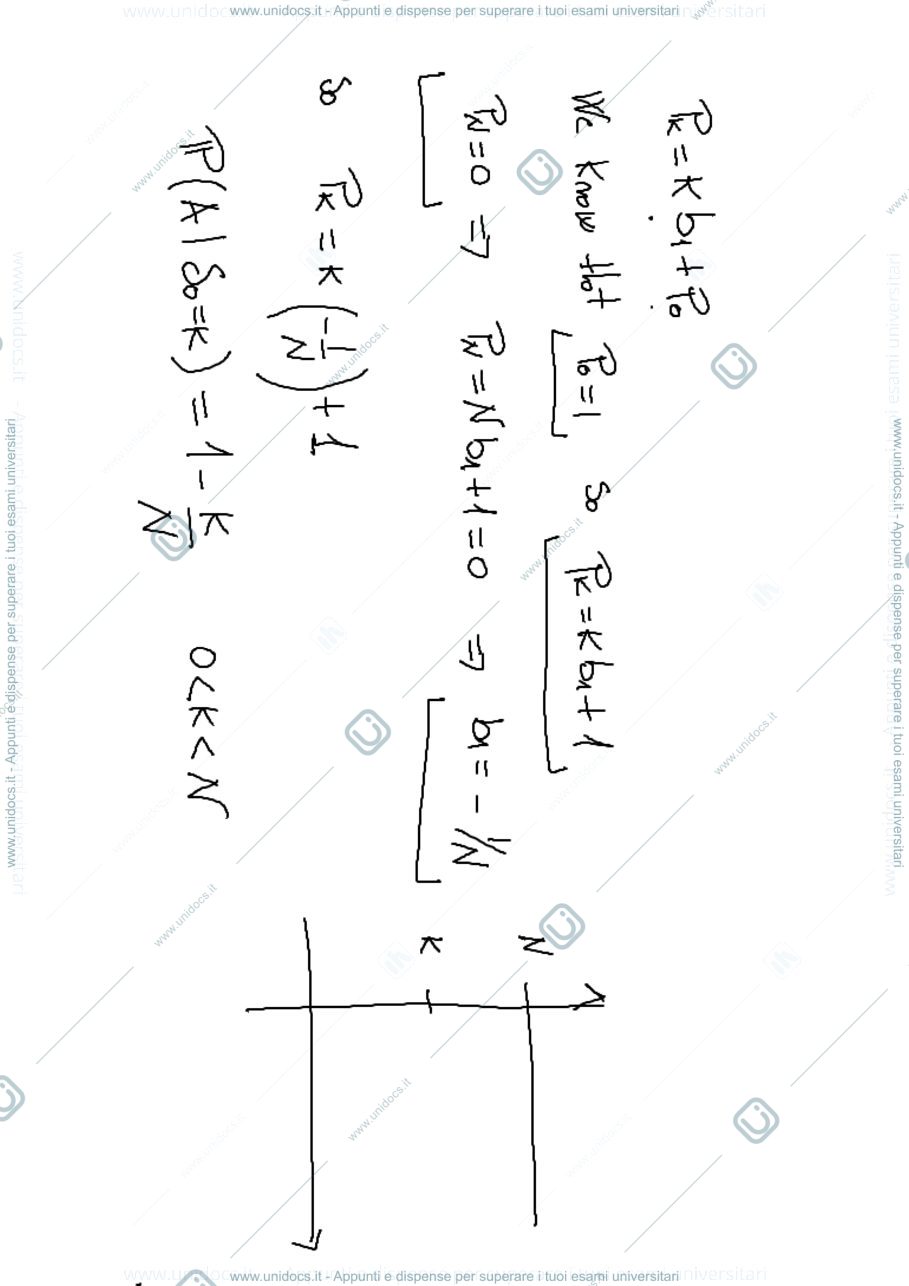 www.unidocs.it - Appunti e dispense per superare i tuoi esami universitari
P_k = k b_1 + P_0
We know that P_0 = 1 so P_k = k b_1 + 1
P_N = 0 ⇒ P_N = N b_1 + 1 = 0 ⇒ b_1 = - 1/N
so P_k = k (-1/N) + 1
P(A | S_0 = k) = 1 - k/N 0 < k < N
N
k
www.unidocs.it - Appunti e dispense per superare i tuoi esami universitari
www.unidocs.it - Appunti e dispense per superare i tuoi esami universitari
www.unidocs.it - Appunti e dispense per superare i tuoi esami universitari
www.unidocs.it
www.unidocs.it
www.unidocs.it
www.unidocs.it
www.unidocs.it
www.unidocs.it